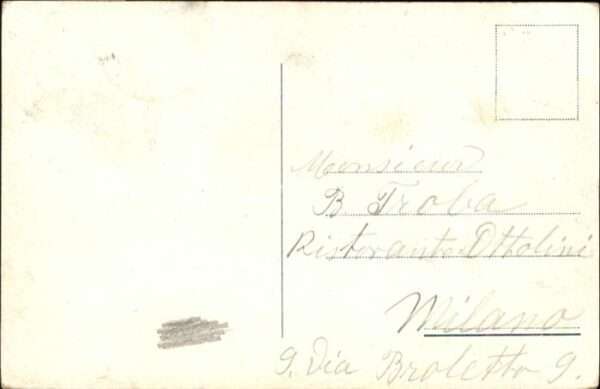 Monsieur
B. Troba
Ristorante Ottolini
Milano
9. Via Broletto 9.